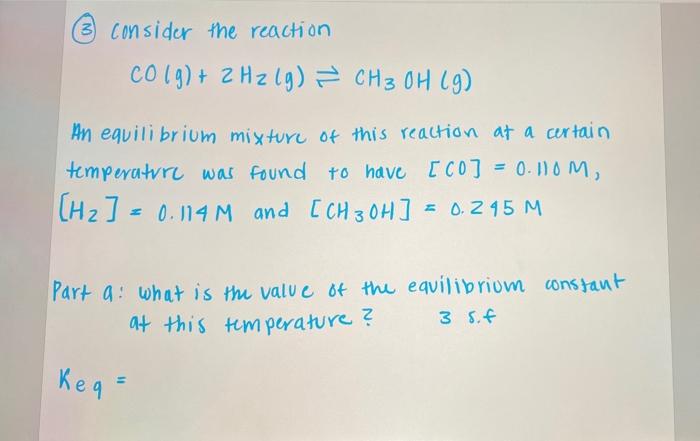 ③ consider the reaction
CO(g) + 2H2(g) ⇌ CH3OH(g)
An equilibrium mixture of this reaction at a certain
temperature was found to have [CO] = 0.110 M,
[H2] = 0.114 M and [CH3OH] = 0.245 M
Part a: what is the value of the equilibrium constant
at this temperature? 3 s.f
Keq =